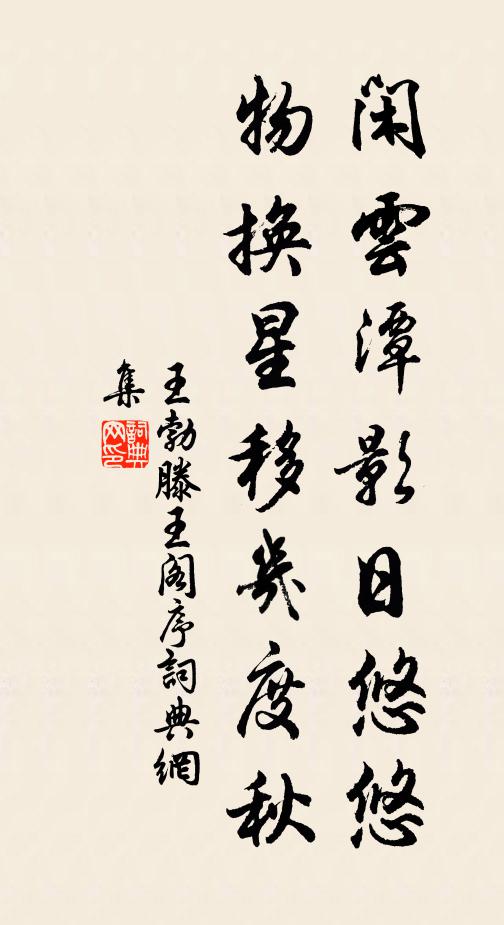 閑雲潭影日悠悠
物換星移幾度秋
王勃滕王阁序詞典網
集
詞典
网印